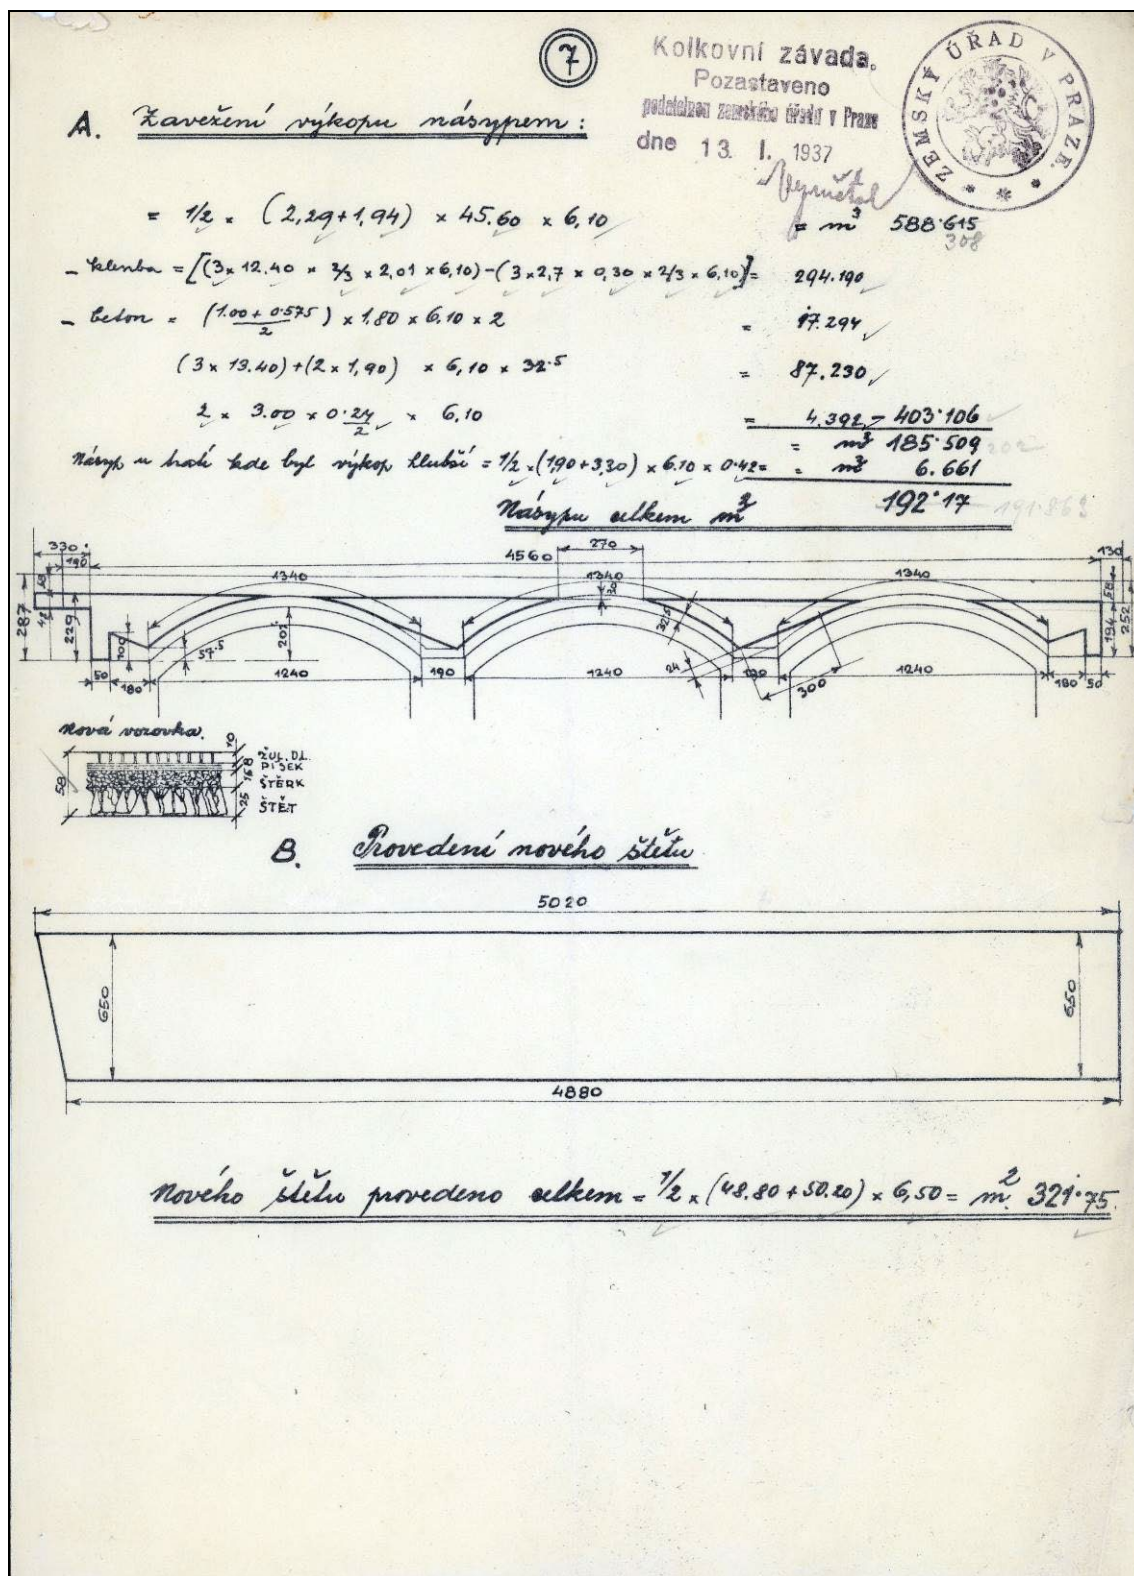 7
Kolkovní závada.
Pozastaveno
podatelnou zemského úřadu v Praze
dne 13. I. 1937
ZEMSKÝ ÚŘAD V PRAZE.
A. Zavežení výkopu násypem:
= 1/2 × (2,29+1,94) × 45.60 × 6,10 = m³ 588·615
308
- klenba = [(3×12.40 × 2/3 × 2,01 × 6,10) - (3×2,7 × 0,30 × 2/3 × 6,10)] = 294.190
- beton = (1.00 + 0·575 / 2) × 1,80 × 6.10 × 2 = 17.294
(3 × 13.40) + (2 × 1,90) × 6,10 × 32·5 = 87.230
2 × 3.00 × 0·24/2 × 6,10 = 4.392,- 403·106
= m³ 185·509 202
Násyp u hrází kde byl výkop hlubší = 1/2 × (1,90+3,30) × 6.10 × 0.42 = = m³ 6.661
Násypu celkem m³ 192·17 191.862
330 190 4560 270 130
1340 1340 1340
287 58 42 229 100 57·5 201 30 32,5 24 194 58 252
50 180 1240 190 1240 190 300 1240 180 50
Nová vozovka.
58
10 8 16 25
ŽUL. DL.
PÍSEK
ŠTĚRK
ŠTĚT
B. Provedení nového štětu
5020
650 650
4880
Nového štětu provedeno celkem = 1/2 × (48.80 + 50.20) × 6,50 = m² 321·75.